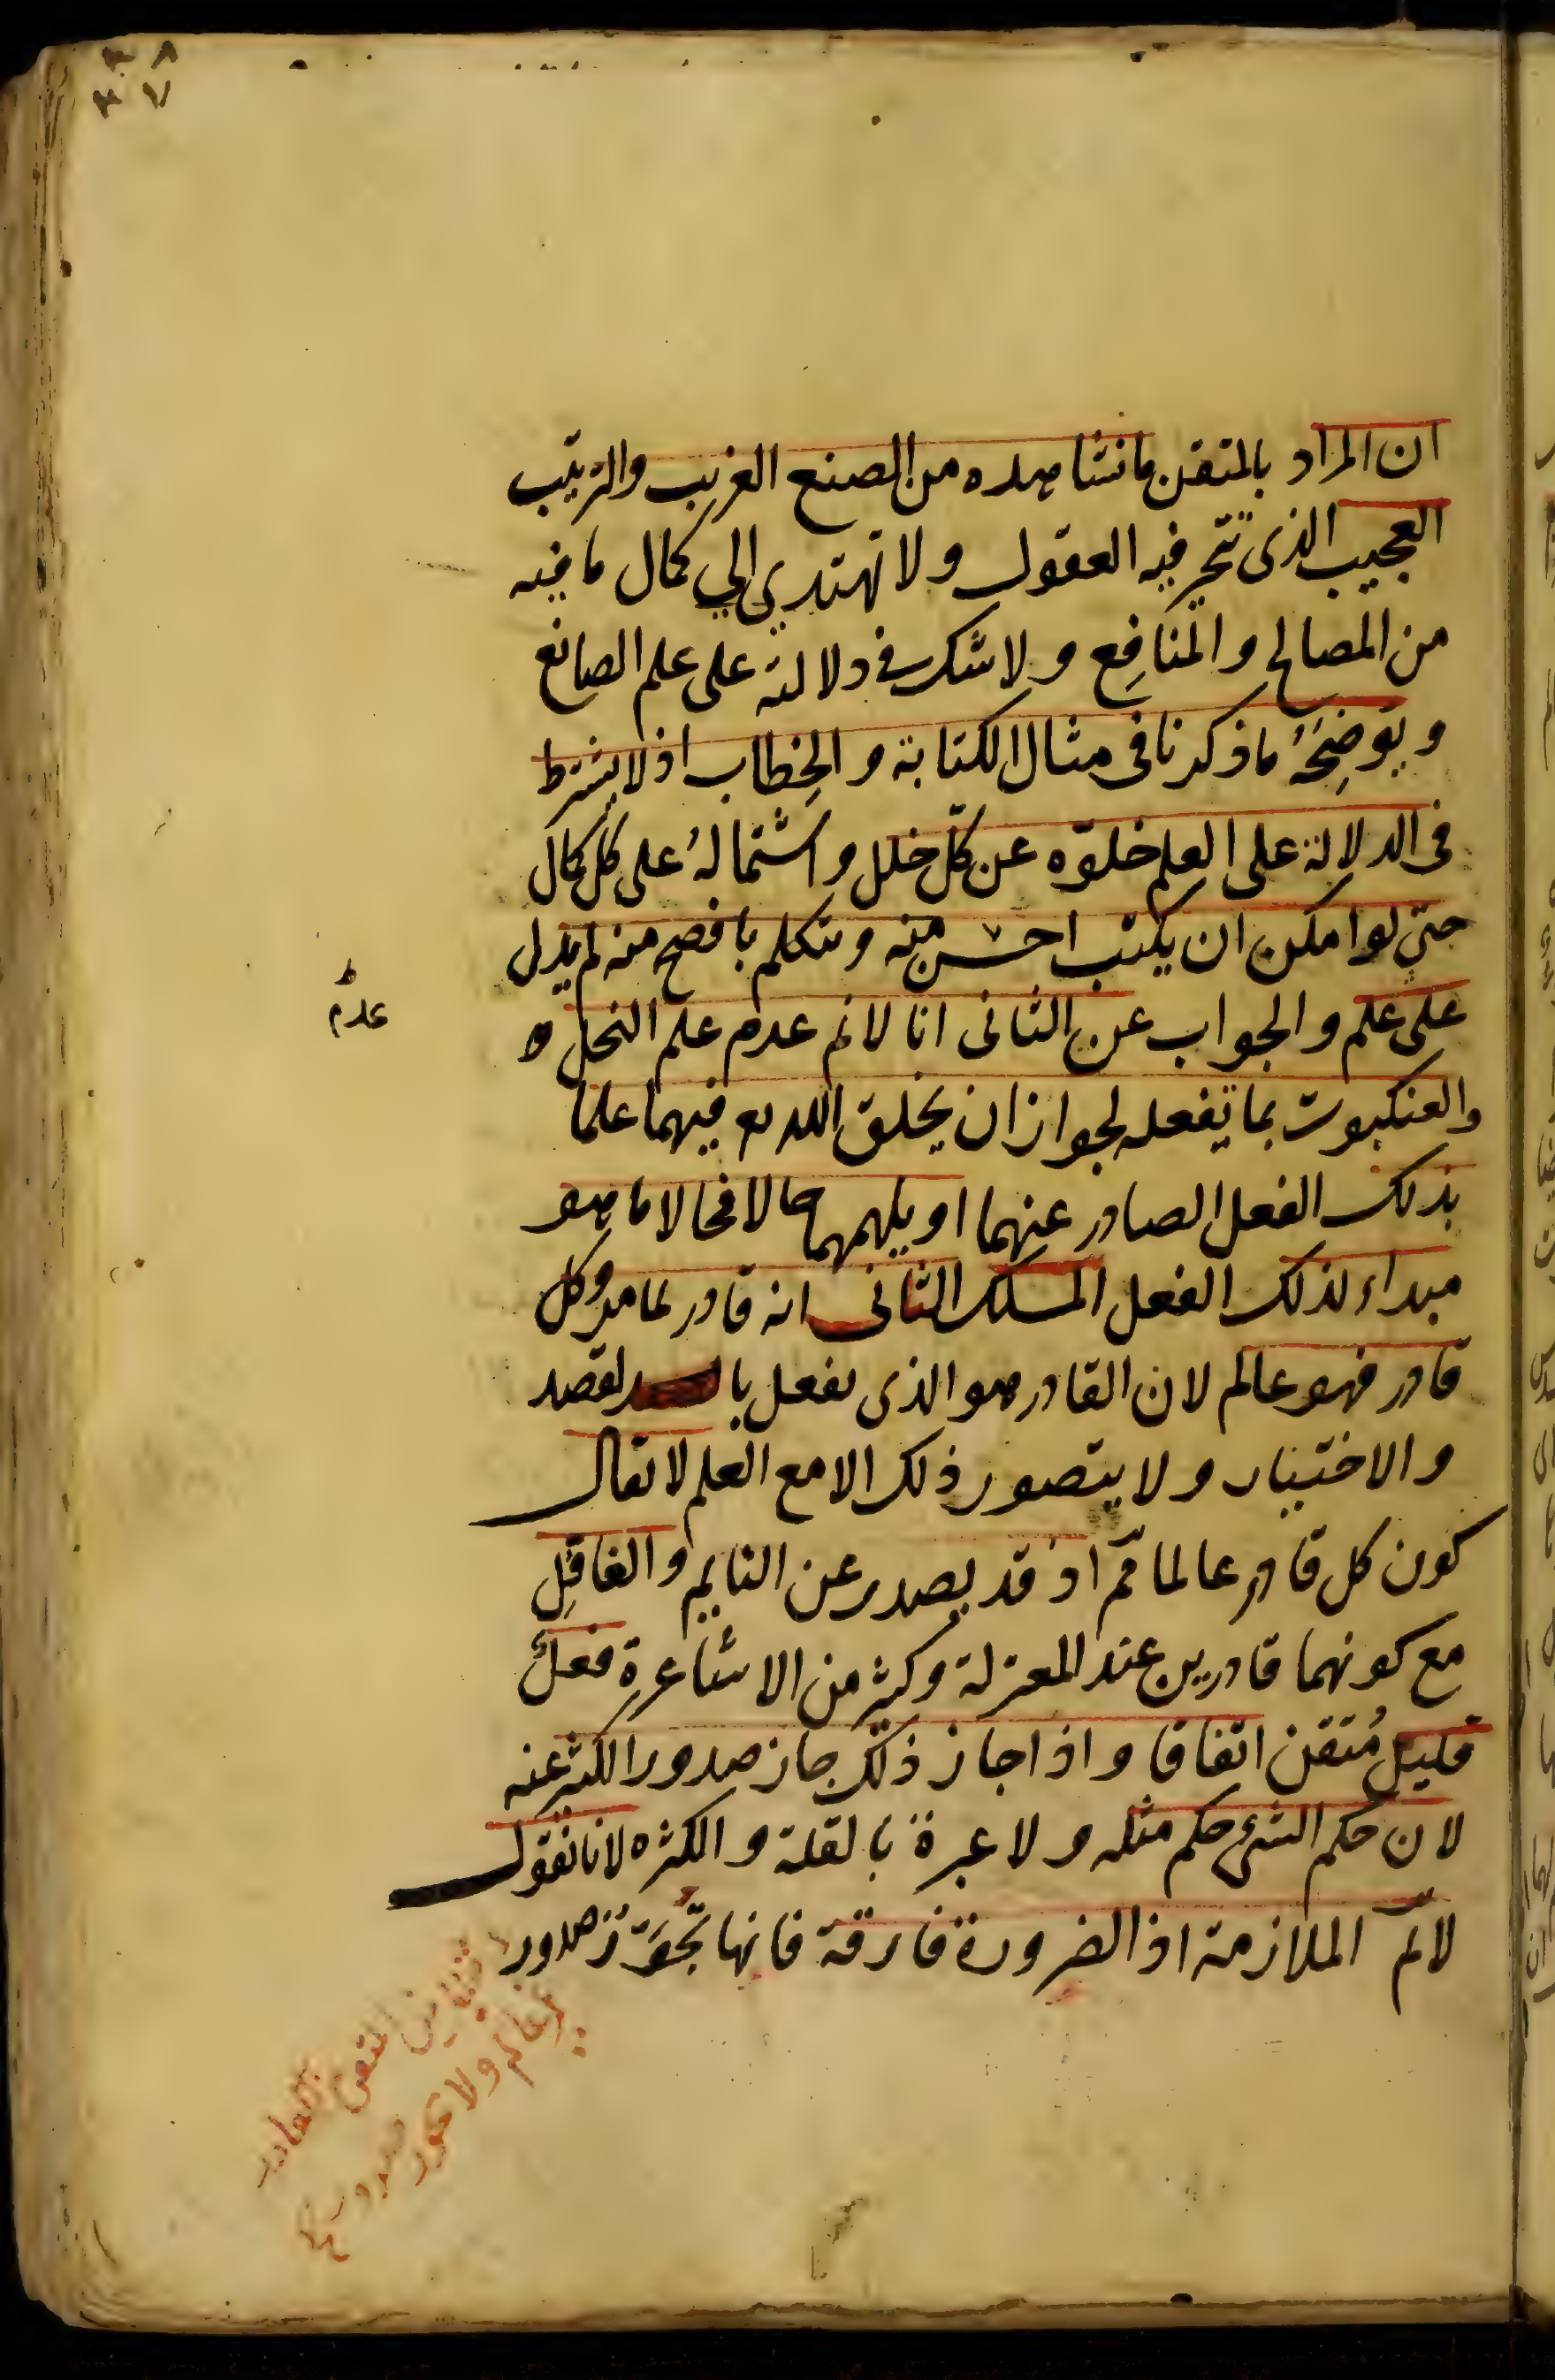 ٣٨
٣٧
ان المراد بالمتقن مانشاهده من الصنع الغريب والترتيب
العجيب الذى تتحير فيه العقول ولا تهتدي الي كمال ما فيه
من المصالح والمنافع ولا شك في دلالته على علم الصانع
ويوضِحُه ماذكرنا فى مثال الكتابة والخِطاب اذ لا يشترط
فى الدلالة على العلم خلوّه عن كلّ خلل واشتمالهُ على كل كمال
حتى لو امكن ان يكتب احسن منه ويتكلم بافصح منه لم يدل
على علم والجواب عن الثانى انا لانم عدم علم النحل ه
والعنكبوت بما يفعله لجواز ان يخلق الله تع فيهما علما
بذلك الفعل الصادر عنهما او يلهمهما حالا فحالا ما هو
مبداء لذلك الفعل المسلك الثانى انه قادر لما مر وكل
قادر فهو عالم لان القادر هو الذى يفعل بالقصد
والاختيار ولا يتصور ذلك الا مع العلم لا يقال
كون كل قادر عالما مم اذ قد يصدر عن النايم والغافِل
مع كونهما قادرين عند المعتزلة وكثير من الاشاعرة فعلٌ
قليل مُتقن اتفاقا واذا جاز ذلك جاز صدور الكثير عنه
لان حكم الشئ حكم مثله ولا عبرة بالقلة والكثره لانا نقول
لانمّ الملازمة اذ الضرورة فارقة فانها تجوّز صدور
عدم